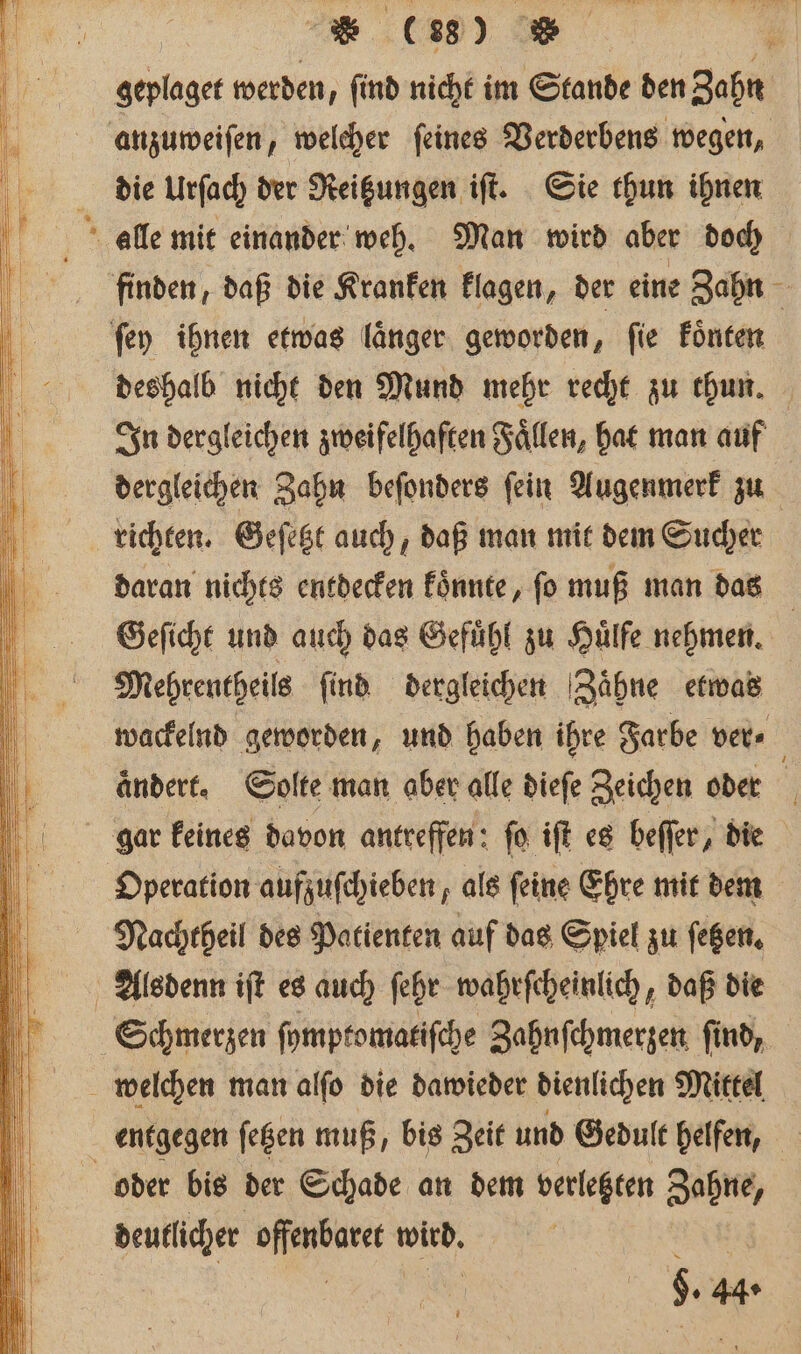 ❀ (88) ❀
geplaget werden, ſind nicht im Stande den Zahn
anzuweiſen, welcher ſeines Verderbens wegen,
die Urſach der Reitzungen iſt. Sie thun ihnen
alle mit einander weh. Man wird aber doch
finden, daß die Kranken klagen, der eine Zahn
ſey ihnen etwas laͤnger geworden, ſie koͤnten
deshalb nicht den Mund mehr recht zu thun.
In dergleichen zweifelhaften Faͤllen, hat man auf
dergleichen Zahn beſonders ſein Augenmerk zu
richten. Geſetzt auch, daß man mit dem Sucher
daran nichts entdecken koͤnnte, ſo muß man das
Geſicht und auch das Gefuͤhl zu Huͤlfe nehmen.
Mehrentheils ſind dergleichen Zaͤhne etwas
wackelnd geworden, und haben ihre Farbe ver⸗
aͤndert. Solte man aber alle dieſe Zeichen oder
gar keines davon antreffen: ſo iſt es beſſer, die
Operation aufzuſchieben, als ſeine Ehre mit dem
Nachtheil des Patienten auf das Spiel zu ſetzen.
Alsdenn iſt es auch ſehr wahrſcheinlich, daß die
Schmerzen ſymptomatiſche Zahnſchmerzen ſind,
welchen man alſo die dawieder dienlichen Mittel
entgegen ſetzen muß, bis Zeit und Gedult helfen,
oder bis der Schade an dem verletzten Zahne,
deutlicher offenbaret wird.
§. 44.